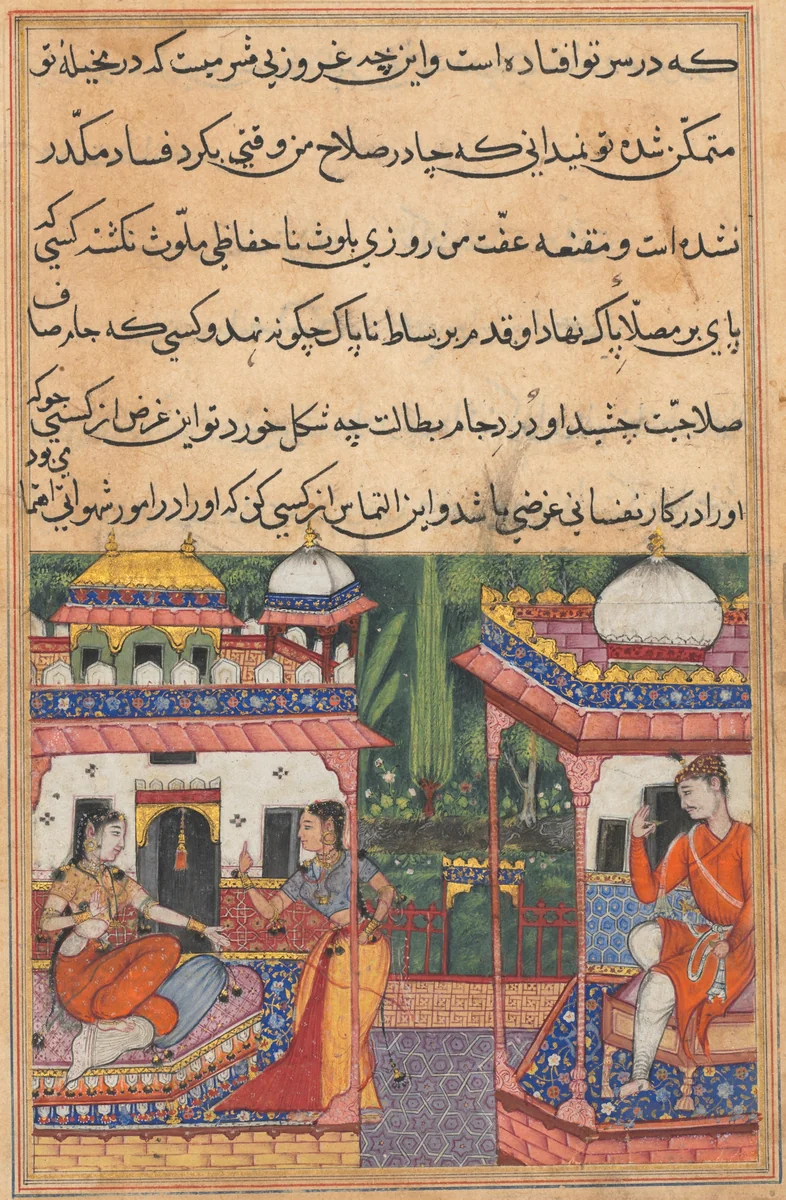 که در سر تو افتاده است و این چه غروزیی مشر میست که در مخیلهٔ تو
متمکّن شده تو نمیدانی که چادر صلاح من وقتی بکرد فساد مکدّر
نشده است و مقنعه عفّت من روزی بلوث نا حفاظی ملوّث نکشته کسی که
پای بر مصلّا پاک نهاد او قدم بر بساط ناپاک چکونه نهد و کسی که جام صاف
صلاحیّت چشید او دُردِ جام بطالت چه شکل خورد تو این غرض از کسی جو که
او را در کار نفسانی غرضی باشد و این التماس از کسی کن که او را در امور شهوانی اهتما
می بود